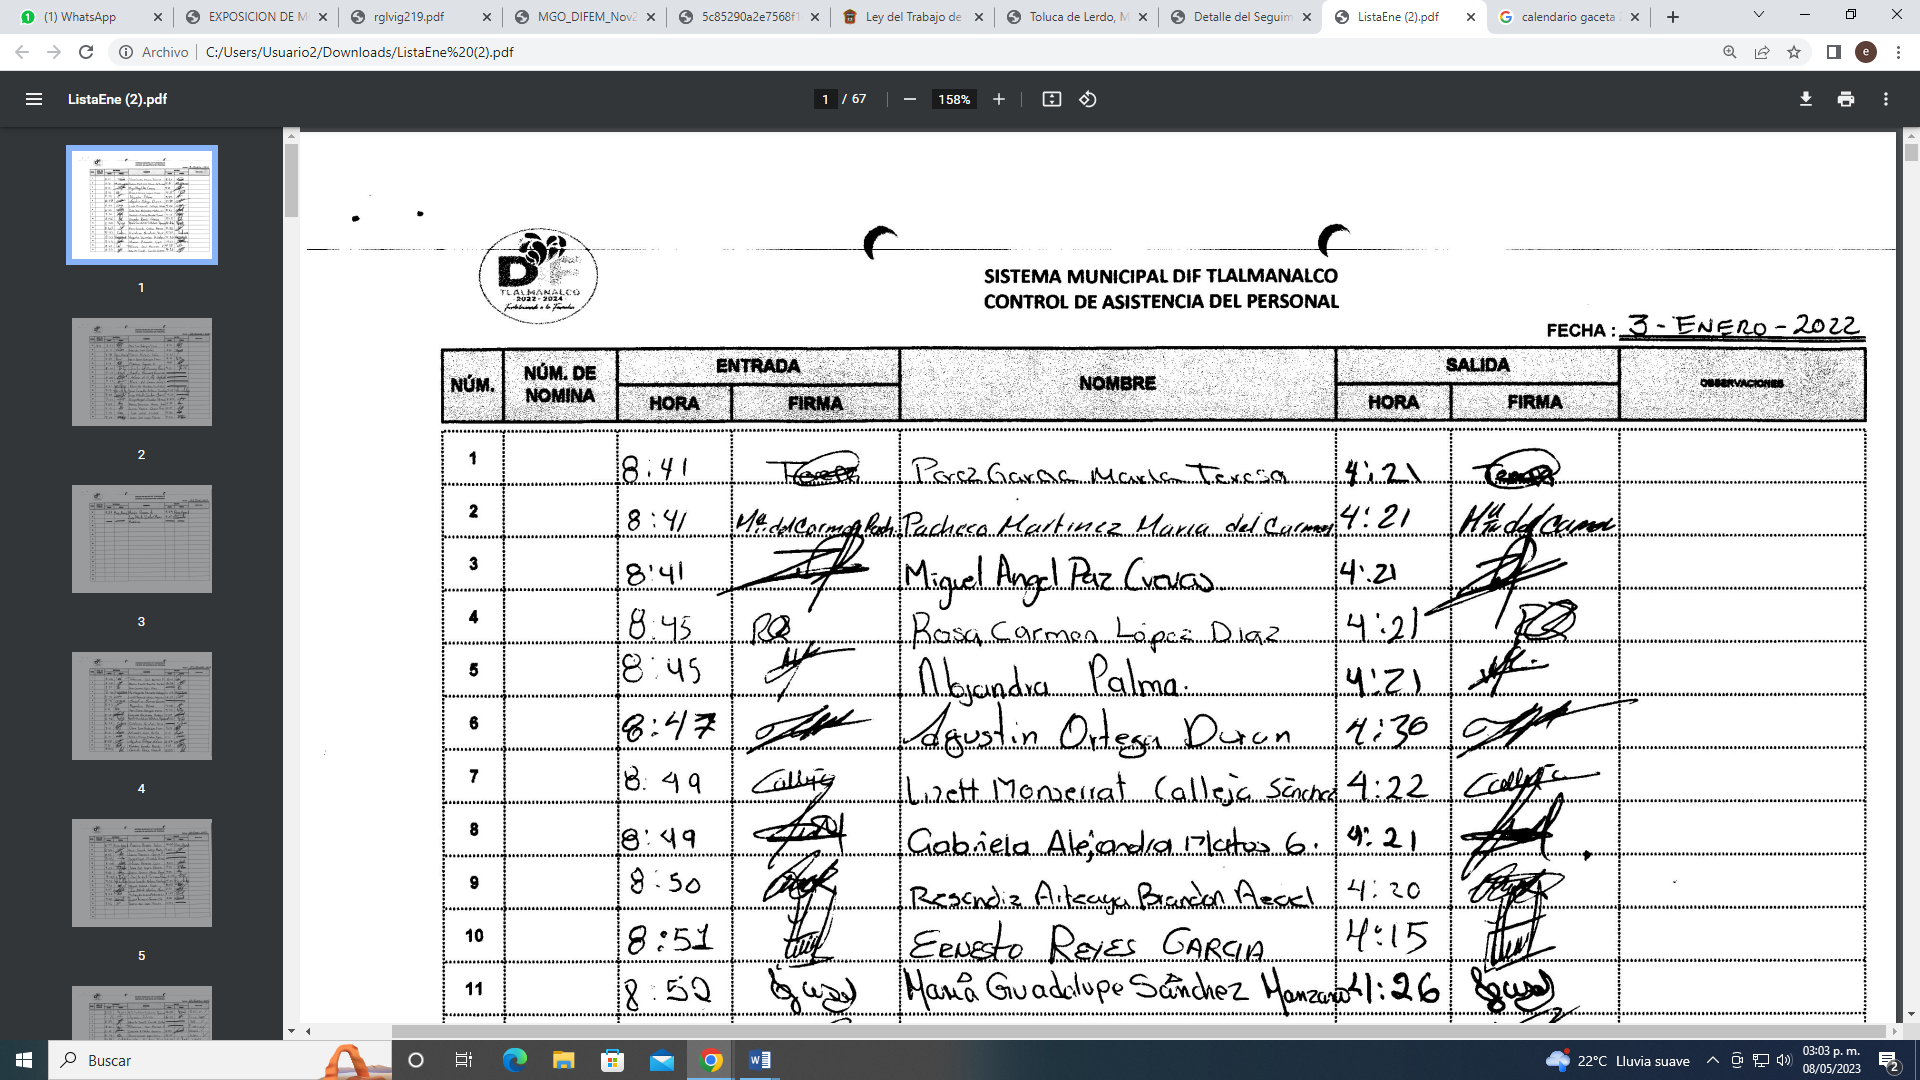 (1) WhatsApp
EXPOSICION DE M
rglvig219.pdf
MGO_DIFEM_Nov2
5c85290a2e7568f1
Ley del Trabajo de
Toluca de Lerdo, M
Detalle del Seguim
ListaEne (2).pdf
calendario gaceta 2
Archivo C:/Users/Usuario2/Downloads/ListaEne%20(2).pdf
e
ListaEne (2).pdf
1 / 67
158%
1
2
3
4
5
DIF
TLALMANALCO
2022 - 2024
SISTEMA MUNICIPAL DIF TLALMANALCO
CONTROL DE ASISTENCIA DEL PERSONAL
FECHA : 3 - ENERO - 2022
NÚM. NÚM. DE NOMINA ENTRADA NOMBRE SALIDA OBSERVACIONES
HORA FIRMA HORA FIRMA
1 8:41 Perez Garcia Maria Teresa 4:21
2 8:41 Ma. del Carmen Pach. Pacheco Martinez Maria del Carmen 4:21 Ma del Carmen
3 8:41 Miguel Angel Paz Cuevas 4:21
4 8:45 Rosa Carmen López Diaz 4:21
5 8:45 Alejandra Palma. 4:21
6 8:47 Agustin Ortega Duran 4:30
7 8:49 Calleja Lizett Monserrat Calleja Sánchez 4:22 Calleja
8 8:49 Gabriela Alejandra Matos G. 4:21
9 8:50 Resendiz Brandon 4:20
10 8:51 ERNESTO REYES GARCIA 4:15
11 8:52 María Guadalupe Sánchez Manzano 4:26
Buscar
22°C Lluvia suave
03:03 p. m.
08/05/2023
2